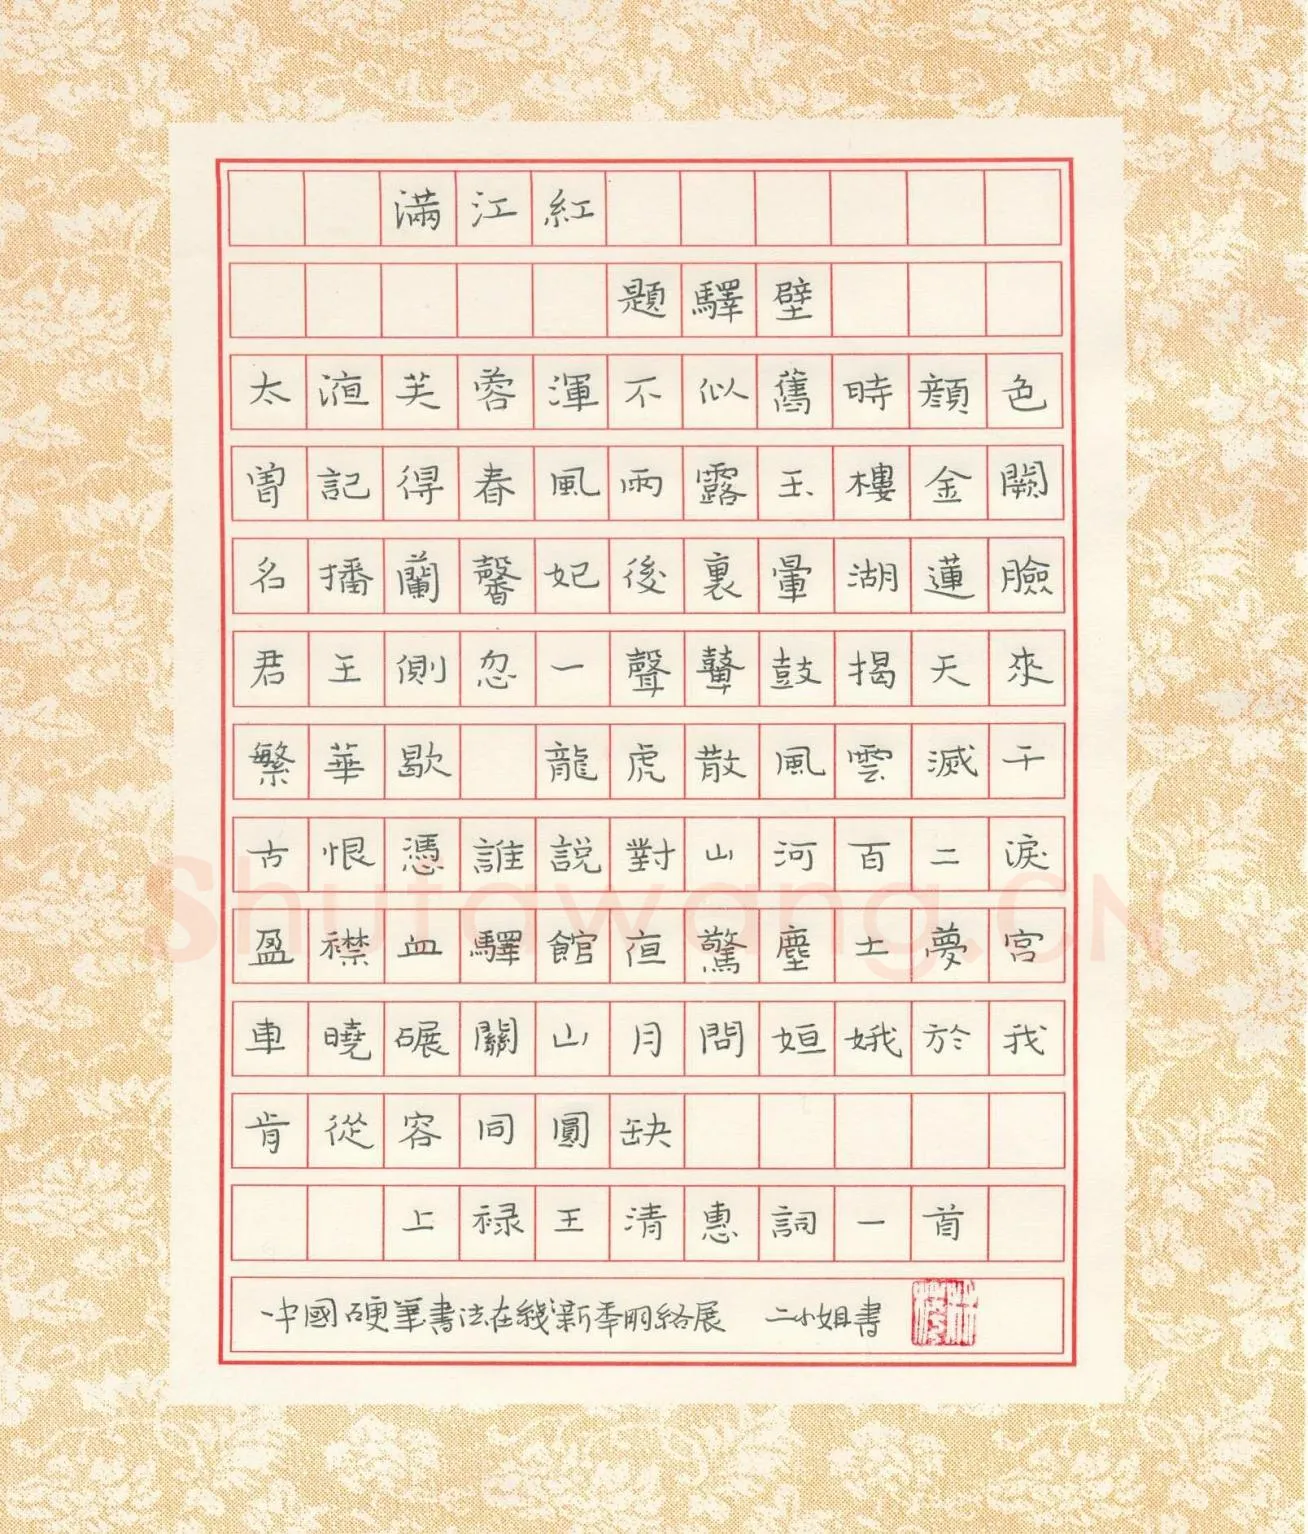 滿江紅
題驛壁
太液芙蓉渾不似舊時顏色
曾記得春風雨露玉樓金闕
名播蘭馨妃後裏暈湖蓮臉
君王側忽一聲鼙鼓揭天來
繁華歇 龍虎散風雲滅千
古恨憑誰說對山河百二淚
盈襟血驛館夜驚塵土夢宮
車曉碾關山月問姮娥於我
肯從容同圓缺
上祿王清惠詞一首
中國硬筆書法在綫新年网絡展 二小姐書
Shufawang.CN